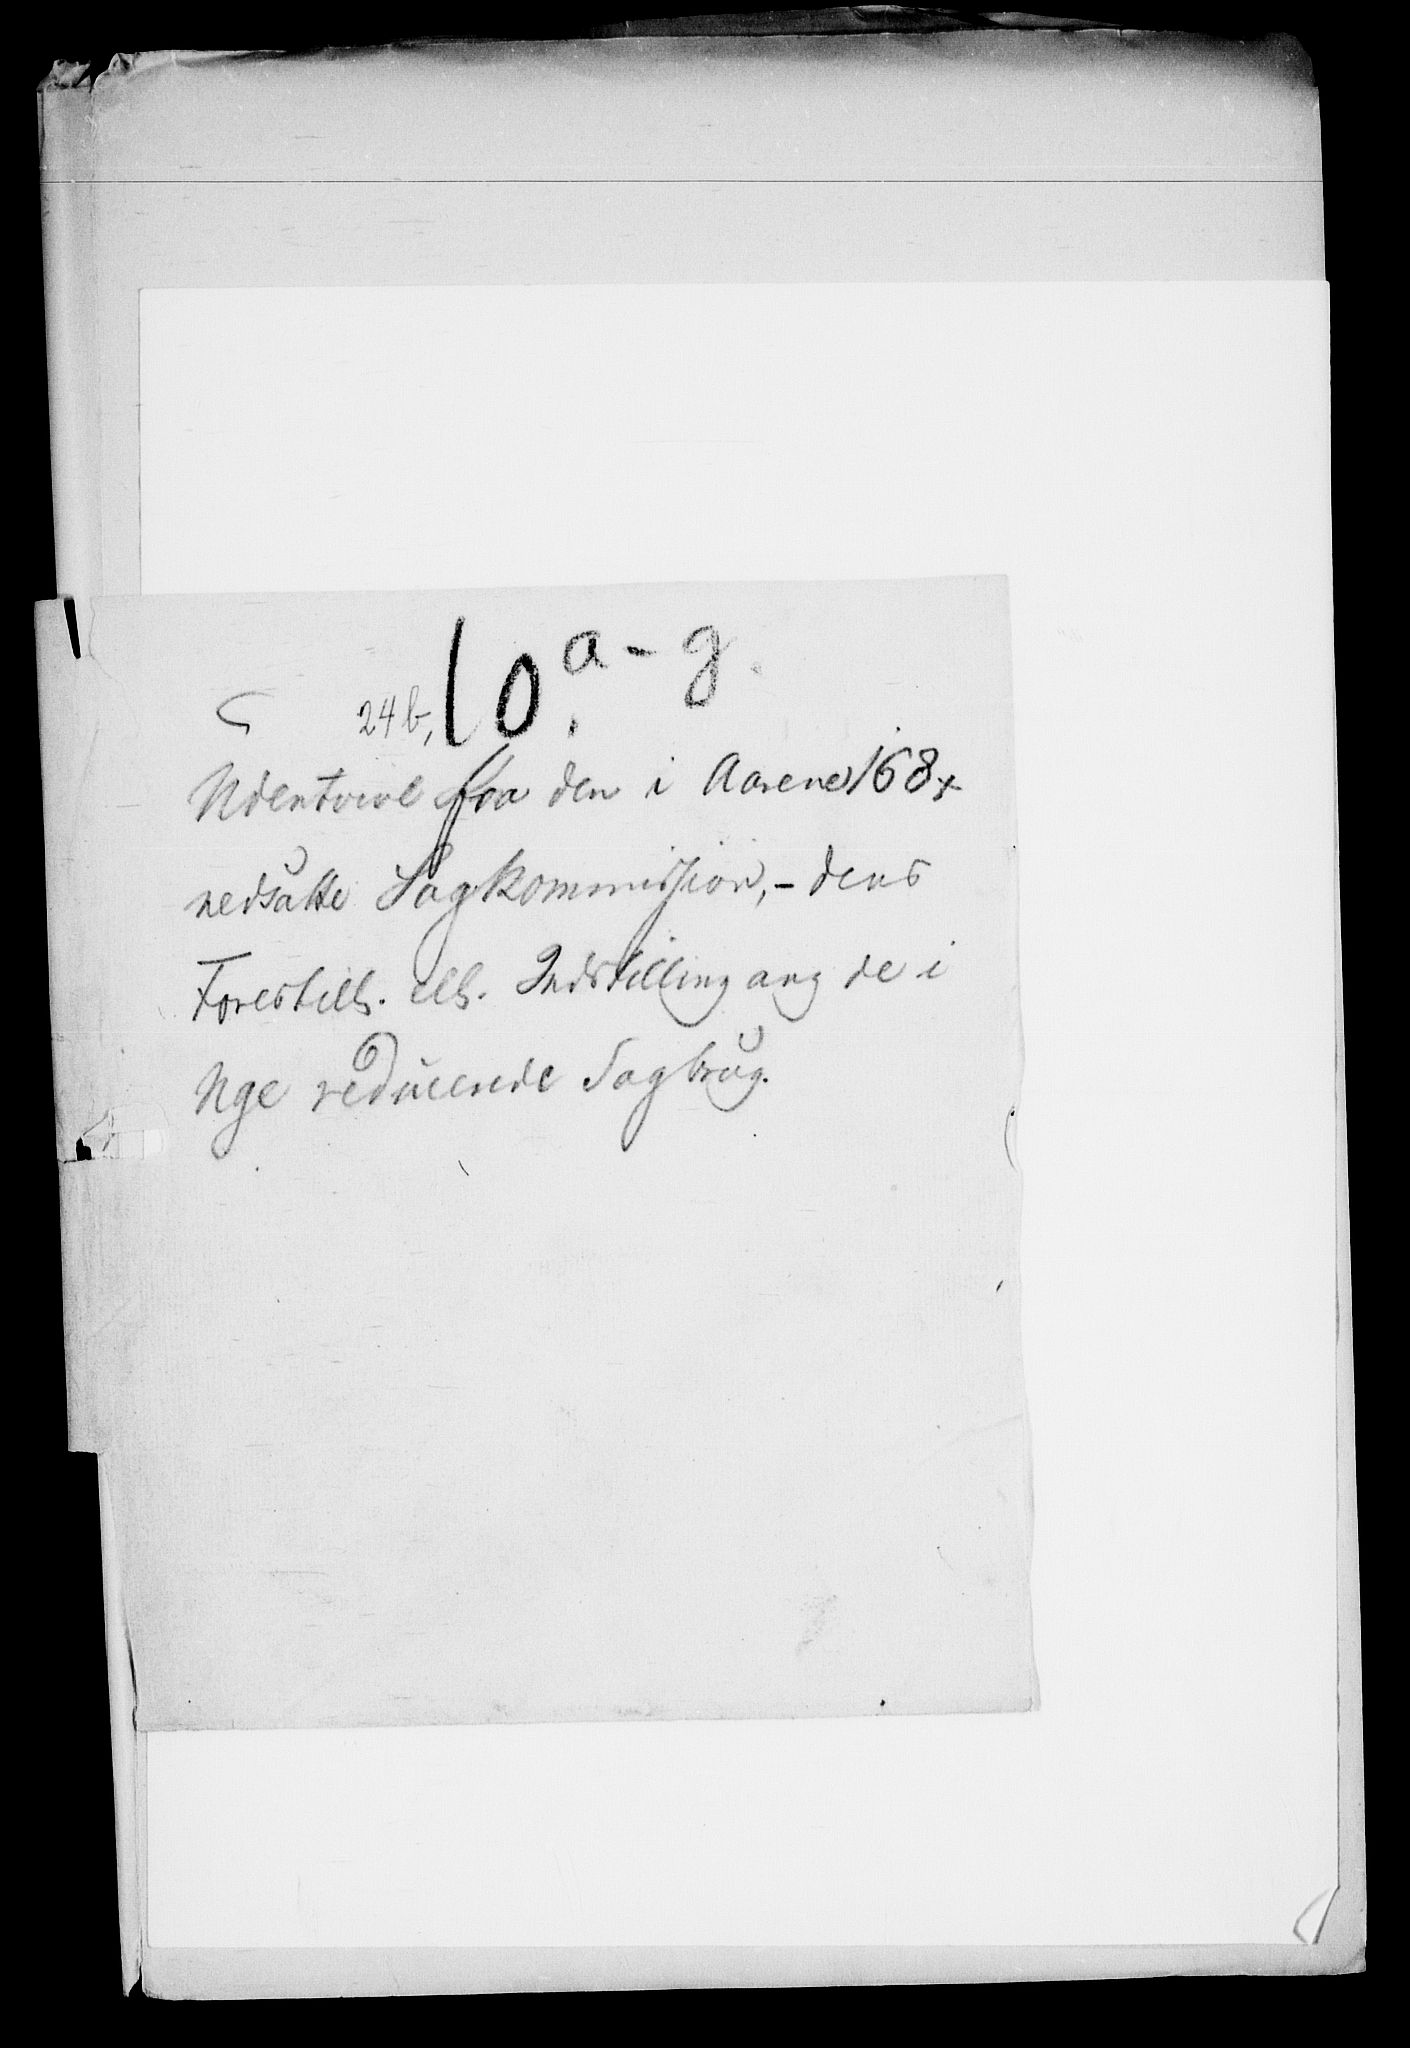 24 b, 10. a - g.
Udentvivl fra den i Aarene 168x
nedsatte Sagkommission, - dens
Forestill. ell. Indstilling ang de i
Nge reducerede Sagbrug.